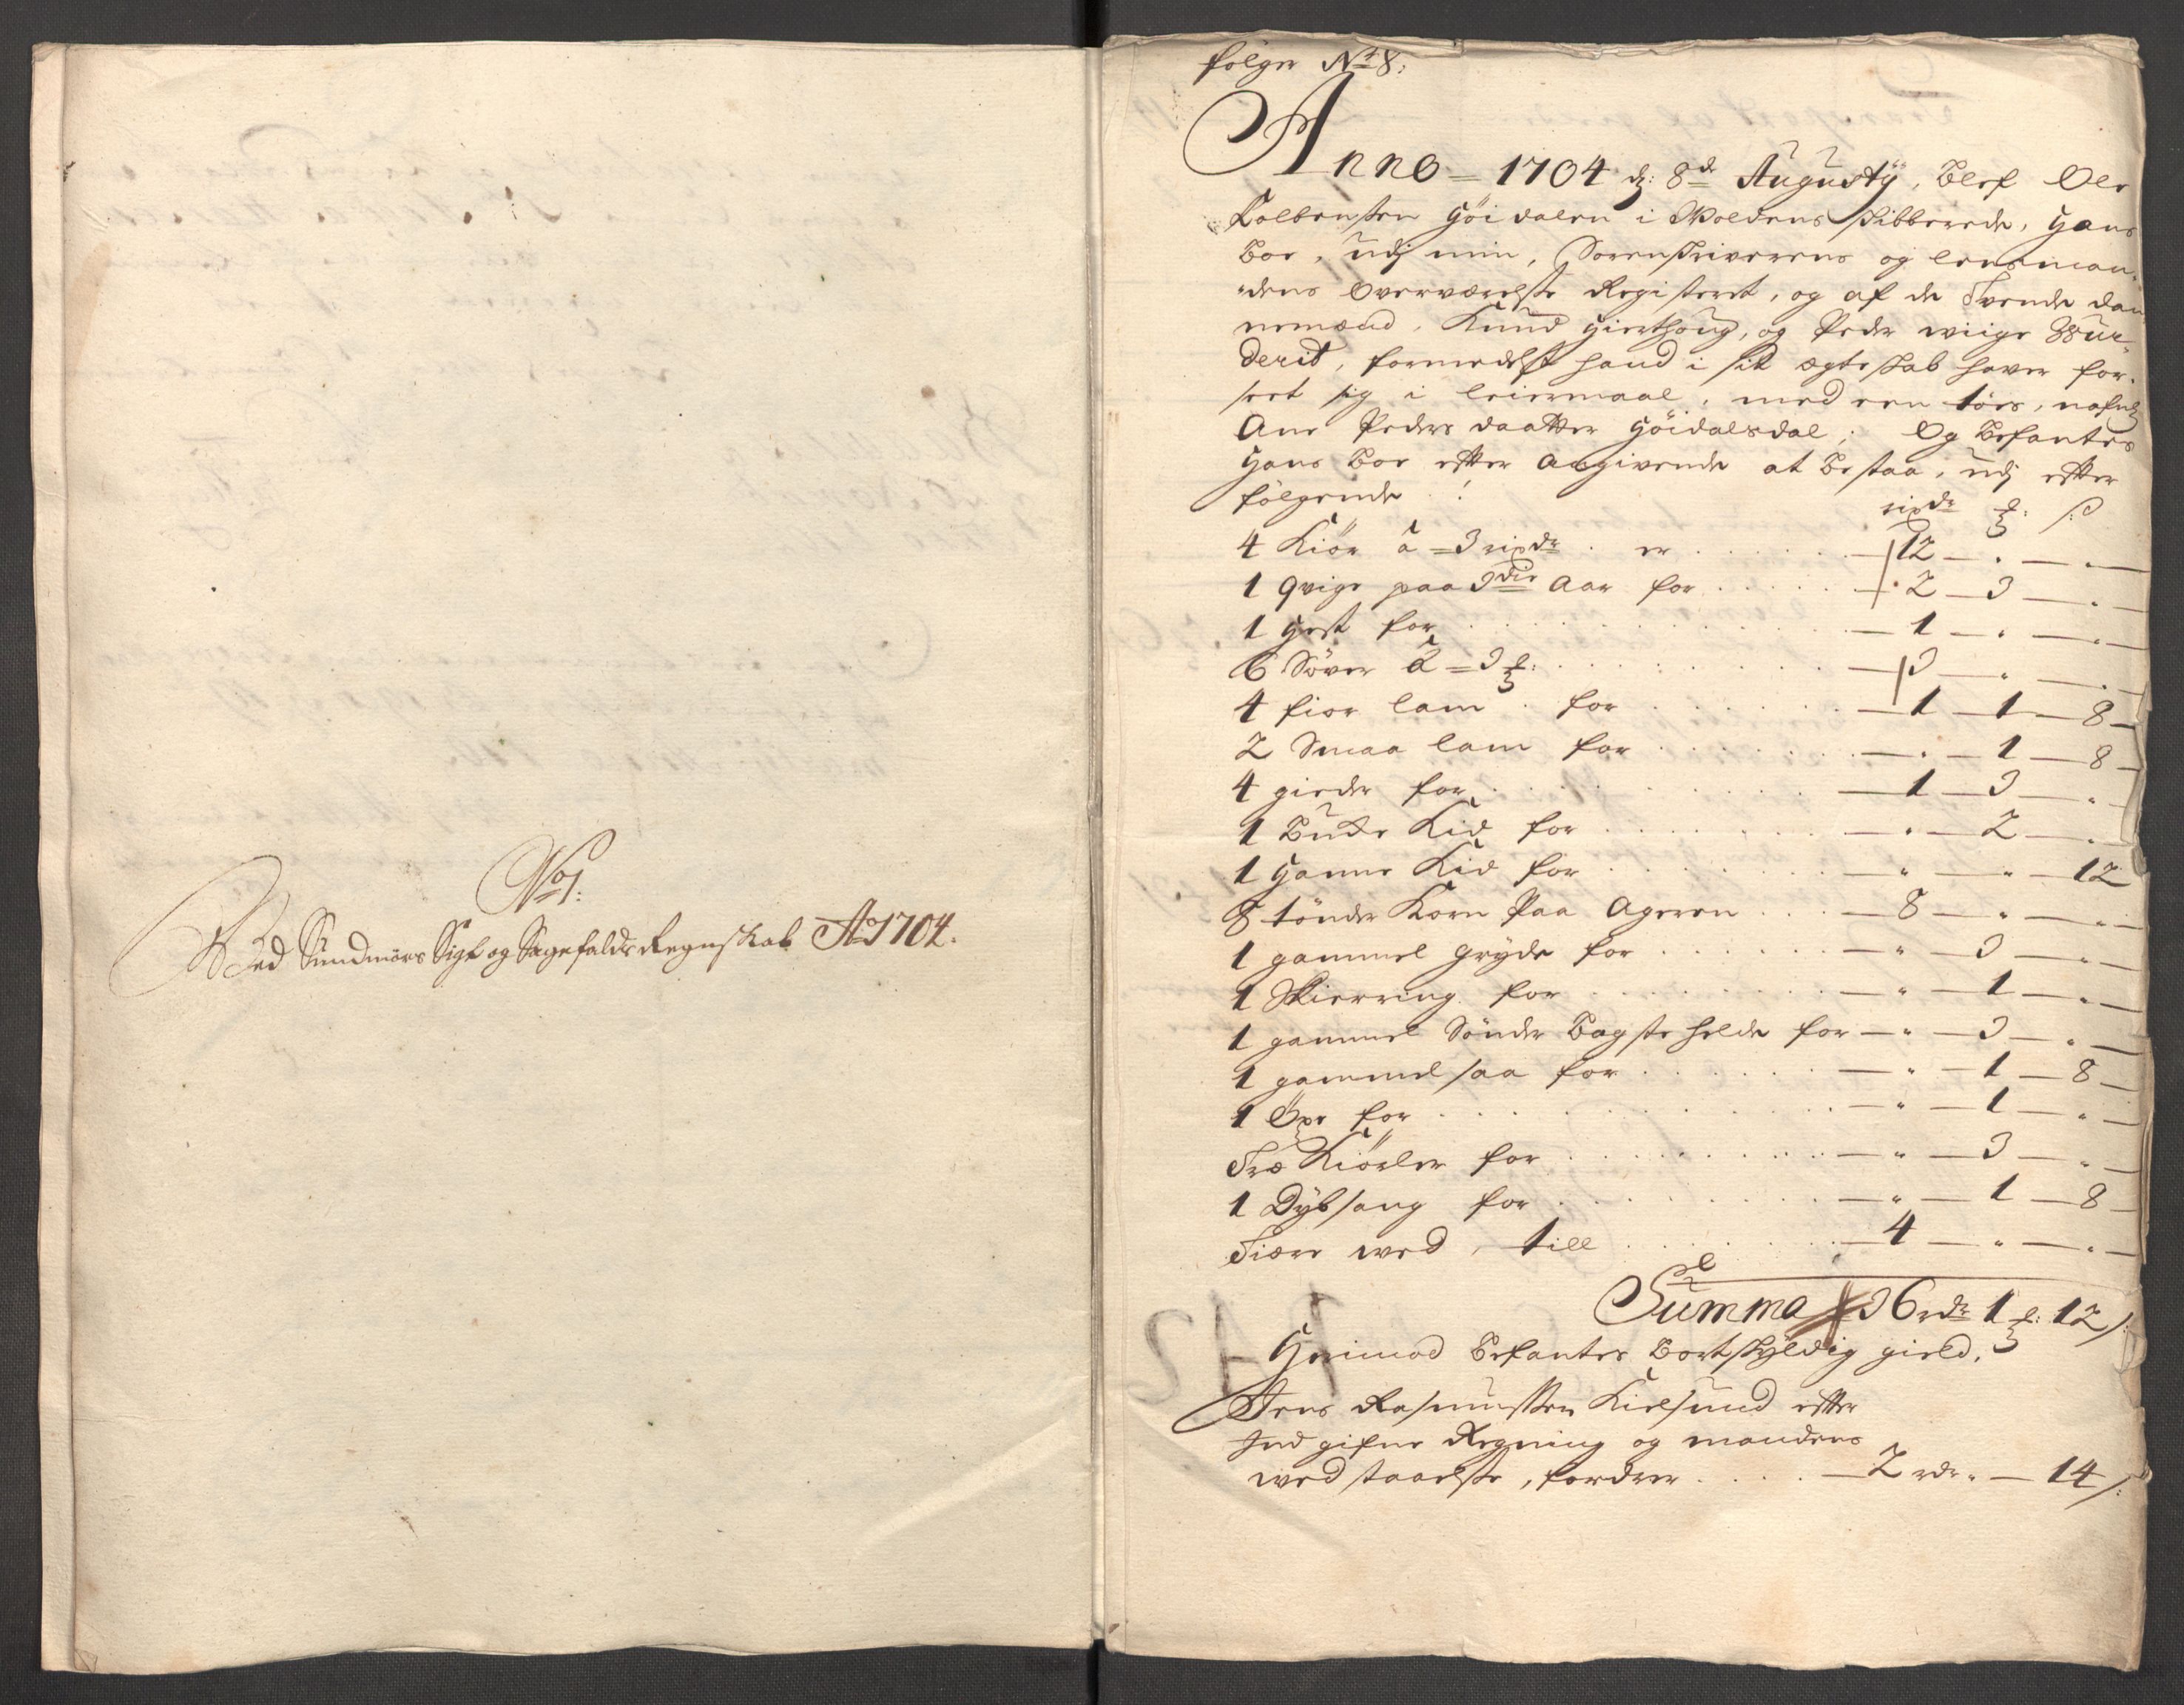 No 1:
Ved Sundmørs Sigt og Sagefalds Regnskab Ao 1704.
følger No 8:
Anno 1704 d: 8de Augustij, blef Ole
Colbensen Høidalen i Woldens skibberede, hans
boe, udj min, Sorenskriverens og lensman-
dens overværelsse Registeret, og af de Tvende dan
nemænd, Knud Hierthoug, og Peder wiige Wur-
derit, formedelst hand i sit ægteskab haver for-
seet sig i leiermaal, med een tøes, nafnl:
Ane Peders daatter Høidalsdal; Og befantes
hans boe efter angivende at bestaa, udj efter
følgende:
rixdr ℔: ß
4 Kiør a 3 rixdr er 12 - " - "
1 qvige paa 3die Aar for 2 - 3 - "
1 Hest for 1 - " - "
6 Søver a 3 ℔: 3 - " - "
4 fior lam for 1 - 1 - 8
2 Smaa lam for " - 1 - 8
4 gieder for 1 - 3 - "
1 Bucke Kid for " - 2 - "
1 Hanne Kid for " - " - 12
8 tønder Korn Paa Ageren 8 - " - "
1 gammel gryde for " - 3 - "
1 Skierring for " - 1 - "
1 gammel Sønder bagste helde for " - 3 - "
1 gammel saa for " - 1 - 8
1 Øxe for " - 1 - "
Træ Kiørler for " - 3 - "
1 Dybsang for " - 1 - 8
Tiære wed, till 4 - " - "
Summa 36 rdr 1 ℔: 12 ß:
Herimod befantes bortskyldig gield,
Jens Rasmussen Kielsund efter
Indgifne Regning og mandens
wedstaaelsse, fordrer 2 rdr " - 14 ß: